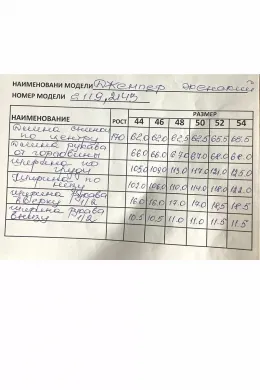 НАИМЕНОВАНИ МОДЕЛИ Джемпер женский
НОМЕР МОДЕЛИ
РАЗМЕР
НАИМЕНОВАНИЕ РОСТ 44 46 48 50 52 54
Длина спинки
по центру 170 62.0 62.0 62.5 62.5 65.5 65.5
Длина рукава
от горловины 66.0 66.0 67.0 67.0 68.0 68.0
ширина по
груди 105.0 109.0 113.0 117.0 121.0 125.0
Ширина по
низу 102.0 106.0 110.0 114.0 118.0 122.0
ширина рукава
вверху 1/2 16.0 16.0 17.0 17.0 18.5 18.5
ширина рукава
внизу 1/2 10.5 10.5 11.0 11.0 11.5 11.5